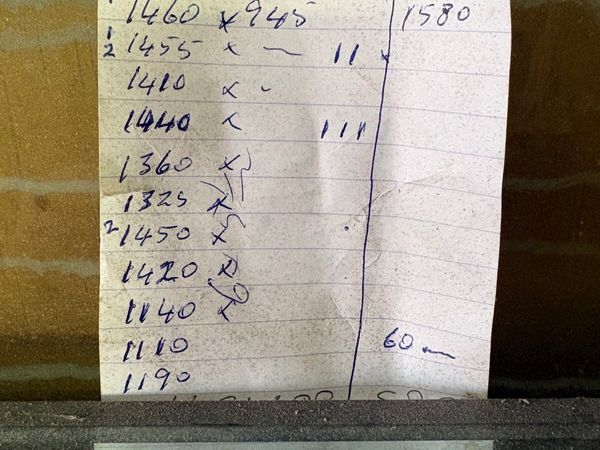 1460 x 945 1580
1/2 1455 x — 11
1410 x -
1440 x 111
1360 x
1325 x
2 1450 x
1420 x
1140 x
1110 60 —
1190